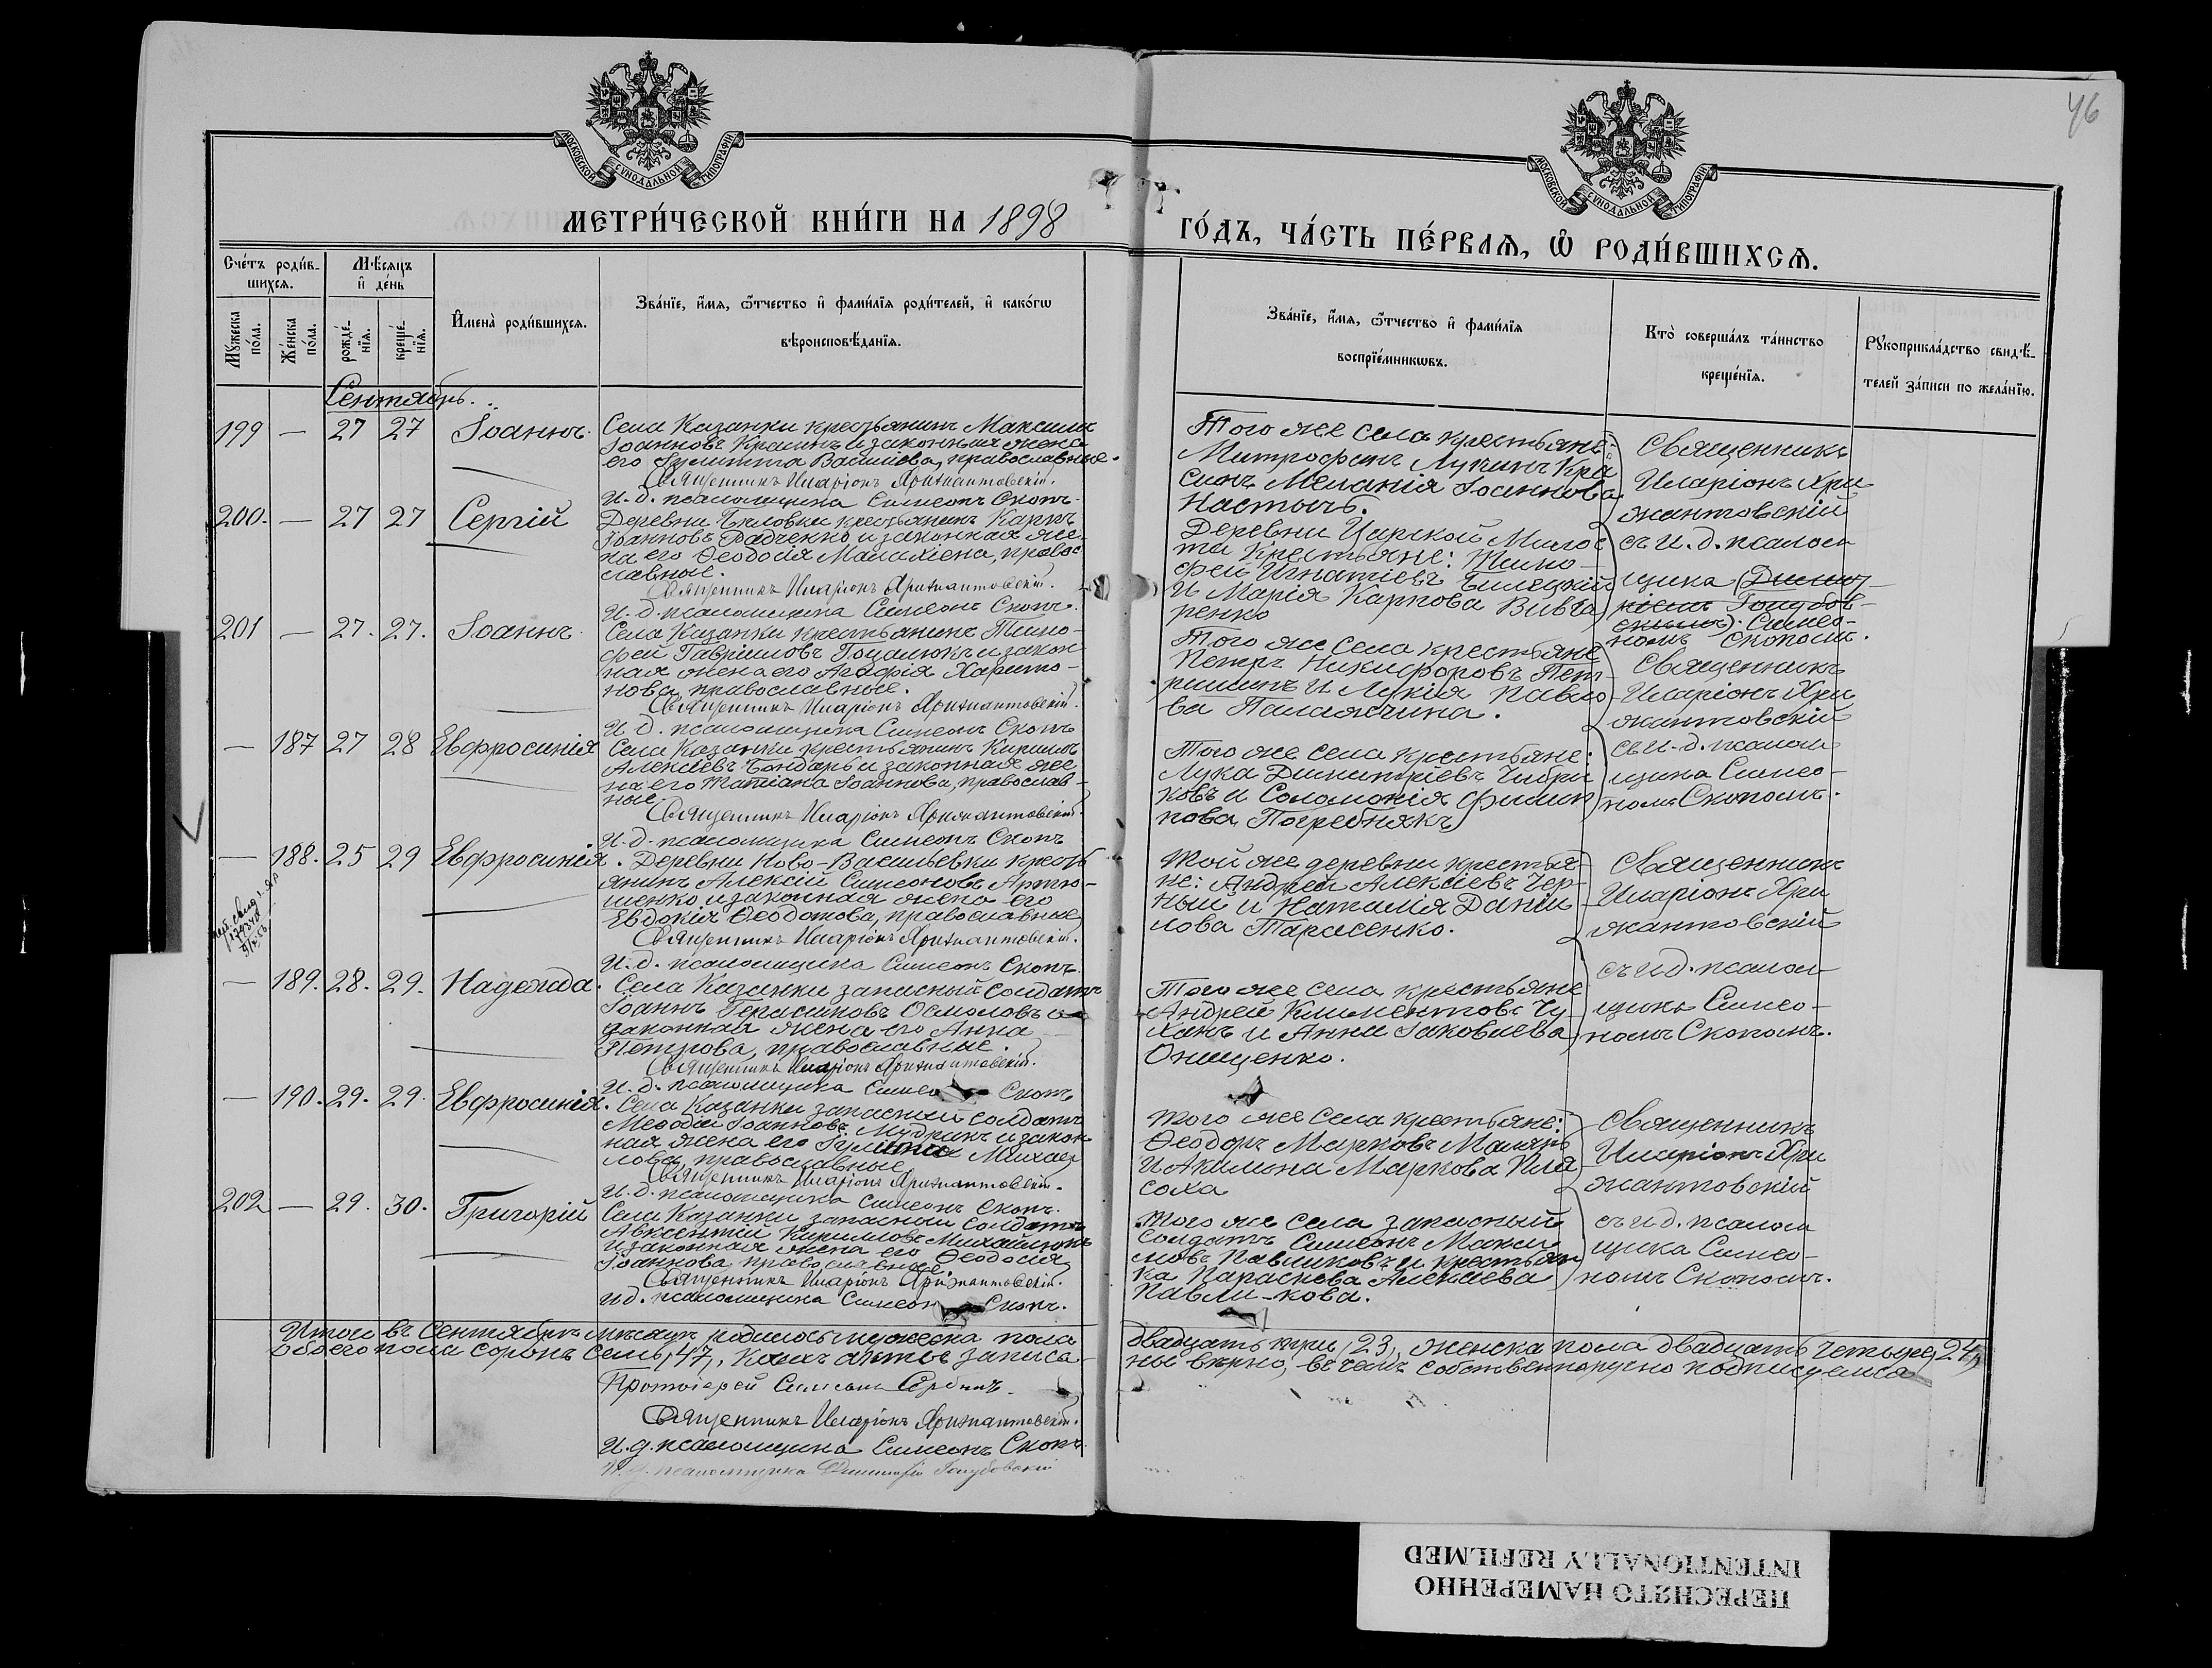 46
МОСКОВСКОЙ СѴНОДАЛЬНОЙ ТИПОГРАФІИ
МОСКОВСКОЙ СѴНОДАЛЬНОЙ ТИПОГРАФІИ
МЕТРИ́ЧЕСКОЙ КНИ́ГИ НА 1898
ГО́ДЪ, ЧА́СТЬ ПЕ́РВАѦ, Ѡ҆ РОДИ́ВШИХСѦ.
Сче́тъ роди́в-
шихсѧ.
Мѣ́сѧцъ
и҆ де́нь
Мꙋ́жеска
по́ла.
Же́нска
по́ла.
рожде́-
нїѧ.
креще́-
нїѧ.
И҆мена̀ роди́вшихсѧ.
Зва́нїе, и҆́мѧ, ѻ҆́тчество и҆ фами́лїѧ роди́телей, и҆ како́гѡ
вѣроисповѣ́данїѧ.
Зва́нїе, и҆́мѧ, ѻ҆́тчество и҆ фами́лїѧ
воспрїе́мникѡвъ.
Кто̀ соверша́лъ та́инство
креще́нїѧ.
Рꙋкоприкла́дство свидѣ́-
телей за́писи по жела́нїю.
Сентябрь.
199 — 27 27 Іоаннъ.
Села Казанки крестьянинъ Максимъ
Іоанновъ Красинъ и законная жена
его Іулитта Василіева, православные.
Священникъ Иларіонъ Хрижантовскій.
И. д. псаломщика Симеонъ Скопъ.
Того же села крестьяне:
Митрофанъ Лукинъ Кра
синъ Меланія Іоаннова
Настычъ.
Священникъ
Иларіонъ Хри
жантовскій
200. — 27 27 Сергій
Деревни Бѣловки крестьянинъ Карпъ
Іоанновъ Радченко и законная же-
на его Ѳеодосія Малахіева, правос
славные.
Священникъ Иларіонъ Хрижантовскій.
И. д. псаломщика Симеонъ Скопъ.
Деревни Царской Милос
ти крестьяне: Тимо-
фей Игнатіевъ Билецкій
И Марія Карпова Вивча
ренко
съ И. д. псалом
щика (Димит
ріемъ Голубов-
скимъ). Симео-
номъ Скопомъ.
201 — 27. 27. Іоаннъ.
Села Казанки крестьянинъ Тимо-
фей Гавріиловъ Гоцалюкъ и закон
ная жена его Агафія Харито-
нова, православные.
Священникъ Иларіонъ Хрижантовскій.
И. д. псаломщика Симеонъ Скопъ
Того же села крестьяне
Петръ Никифоровъ Пет-
ришинъ И Лукія Павло
ва Паламчина.
Священникъ
Иларіонъ Хри
жантовскій
— 187 27 28 Евфросинія
Села Казанки крестьянинъ Кириллъ
Алексіевъ Бондарь и законная же
на его Татіана Іоаннова, православ-
ные
Священникъ Иларіонъ Хрижантовскій.
И. д. псаломщика Симеонъ Скопъ
Того же села крестьяне:
Лука Димитріевъ Чибри
ковъ и Соломонія Филип
пова Погребнякъ
съ И. д. псалом
щика Симео-
номъ Скопомъ.
— 188. 25 29 Евфросинія.
Деревни Ново-Васильевки кресть
янинъ Алексій Симеоновъ Артю-
шенко и законная жена его
Евдокія Ѳеодотова, православные
Священникъ Иларіонъ Хрижантовскій.
И. д. псаломщика Симеонъ Скопъ
Той же деревни крестья-
не: Андрей Алексіевъ Чер-
ный и Наталія Даніи
лова Тарасенко.
Священникъ
Иларіонъ Хри
жантовскій
— 189. 28. 29. Надежда.
Села Казанки запасный солдатъ
Іоаннъ Герасимовъ Осмоловъ и
законная жена его Анна
Петрова, православные.
Священникъ Иларіонъ Хрижантовскій.
И. д. псаломщика Симео Скопъ
Того же села крестьяне
Андрей Климентовъ Чу-
ханъ и Анна Іаковлева
Онищенко.
съ и д. псалом
щика Симео-
номъ Скопомъ.
— 190. 29. 29. Евфросинія.
Села Казанки запасный солдатъ
Меѳодій Іоанновъ Мудракъ и закон
ная жена его Іулитта Михаи
лова, православные
Священникъ Иларіонъ Хрижантовскій.
И. д. псаломщика Симеонъ Скопъ.
Того же села крестьяне:
Ѳеодоръ Марковъ Маляръ
И Акилина Маркова Пля
соха
Священникъ
Иларіонъ Хри
жантовскій
202 — 29. 30. Григорій
Села Казанки запасный солдатъ
Авксентій Кирилловъ Михайлюкъ
и законная жена его Ѳеодосія
Іоаннова, православные.
Священникъ Иларіонъ Хрижантовскій.
и д. псаломщика Симеон Скопъ.
Того же села запасный
солдатъ Симеонъ Макси
мовъ Павликовъ и крестьян
ка Параскева Алексіева
Павли-кова.
съ и д. псалом
щика Симео-
номъ Скопомъ.
Итого въ Сентябрѣ мѣсяцѣ родилось мужеска пола двадцать три, 23, женска пола двадцать четыре, 24,
обоего пола сорокъ семь, 47, каковы акты записа-
ны вѣрно, въ чемъ собственноручно подписуемся
Протоіерей Симеонъ Сербинъ.
Священникъ Иларіонъ Хрижантовскій.
И. д. псаломщика Симеонъ Скопъ.
И. д. псаломщика Димитрій Голубовскій
ПЕРЕСНЯТО НАМЕРЕННО
INTENTIONALLY REFILMED